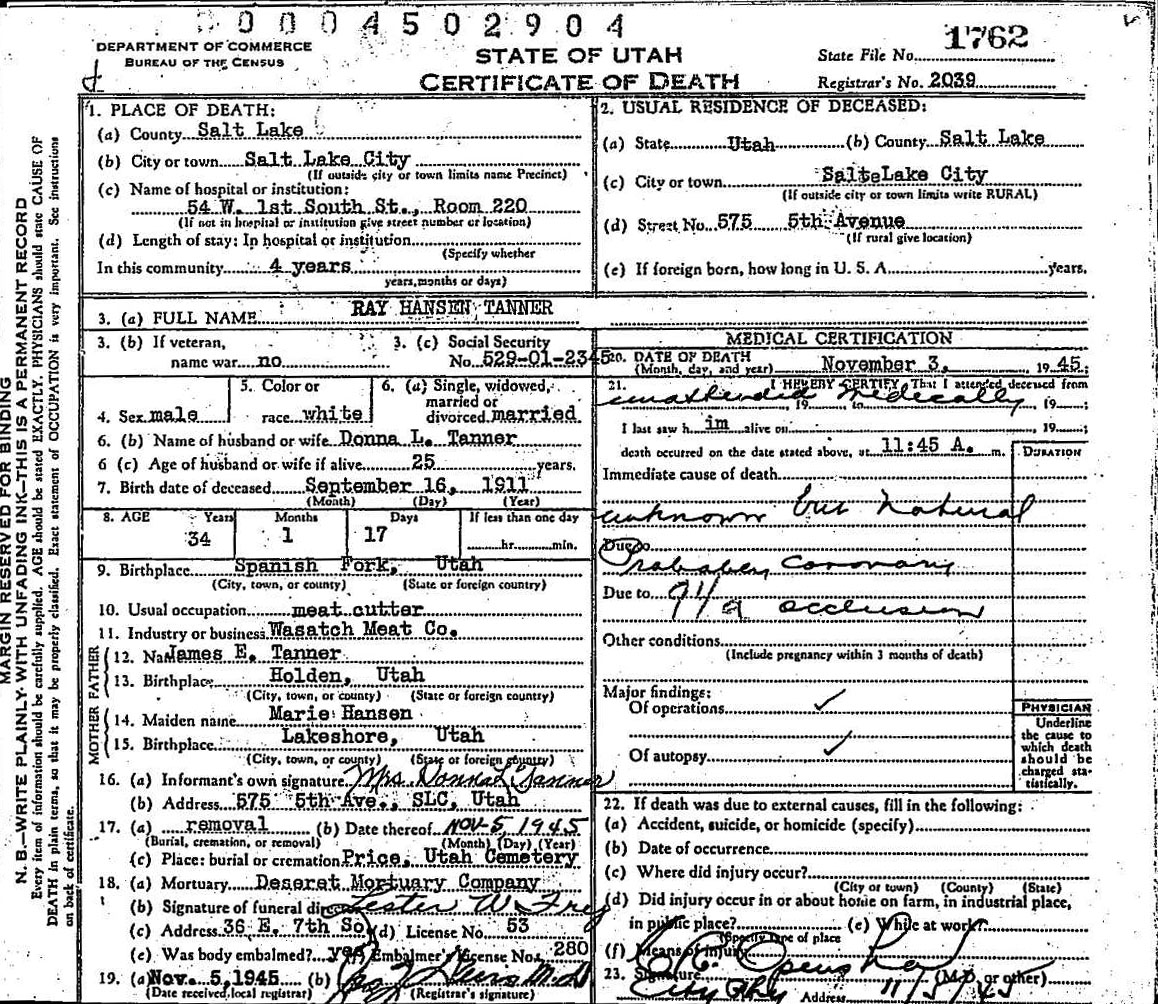 0004502904
1762
DEPARTMENT OF COMMERCE
BUREAU OF THE CENSUS
STATE OF UTAH
CERTIFICATE OF DEATH
State File No.
Registrar's No. 2039
MARGIN RESERVED FOR BINDING
N. B.—WRITE PLAINLY WITH UNFADING INK—THIS IS A PERMANENT RECORD
Every item of information should be carefully supplied. AGE should be stated EXACTLY. PHYSICIANS should state CAUSE OF
DEATH in plain terms, so that it may be properly classified. Exact statement of OCCUPATION is very important. See instructions
on back of certificate.
1. PLACE OF DEATH:
(a) County Salt Lake
(b) City or town Salt Lake City
(If outside city or town limits name Precinct)
(c) Name of hospital or institution:
54 W. 1st South St., Room 220
(If not in hospital or institution give street number or location)
(d) Length of stay: In hospital or institution
(Specify whether
In this community 4 years
years, months or days)
2. USUAL RESIDENCE OF DECEASED:
(a) State Utah (b) County Salt Lake
(c) City or town Salt Lake City
(If outside city or town limits write RURAL)
(d) Street No. 575 5th Avenue
(If rural give location)
(e) If foreign born, how long in U. S. A. years.
3. (a) FULL NAME RAY HANSEN TANNER
3. (b) If veteran,
name war no
3. (c) Social Security
No. 529-01-2345
4. Sex male
5. Color or
race white
6. (a) Single, widowed,
married or
divorced married
6. (b) Name of husband or wife Donna L. Tanner
6 (c) Age of husband or wife if alive 25 years.
7. Birth date of deceased September 16, 1911
(Month) (Day) (Year)
8. AGE Years Months Days If less than one day
34 1 17 hr. min.
9. Birthplace Spanish Fork, Utah
(City, town, or county) (State or foreign country)
10. Usual occupation meat cutter
11. Industry or business Wasatch Meat Co.
FATHER
12. Name James E. Tanner
13. Birthplace Holden, Utah
(City, town, or county) (State or foreign country)
MOTHER
14. Maiden name Marie Hansen
15. Birthplace Lakeshore, Utah
(City, town, or county) (State or foreign country)
16. (a) Informant's own signature Mrs Donna L Tanner
(b) Address 575 5th Ave., SLC, Utah
17. (a) removal (b) Date thereof NOV-5, 1945
(Burial, cremation, or removal) (Month) (Day) (Year)
(c) Place: burial or cremation Price, Utah Cemetery
18. (a) Mortuary Deseret Mortuary Company
(b) Signature of funeral director Lester W Frey
(c) Address 36 E. 7th So. (d) License No. 53
(e) Was body embalmed? yes Embalmer's License No. 280
19. (a) Nov. 5, 1945 (b) M.D.
(Date received local registrar) (Registrar's signature)
MEDICAL CERTIFICATION
20. DATE OF DEATH
(Month, day, and year) November 3, 1945;
21. I HEREBY CERTIFY, That I attended deceased from
unattended medically 19 to 19
I last saw him alive on 19
death occurred on the date stated above, at 11:45 A. m.
DURATION
Immediate cause of death
unknown but natural
Due to
Probabley coronary
Due to 94a occlusion
Other conditions
(Include pregnancy within 3 months of death)
Major findings:
Of operations ✓
Of autopsy ✓
PHYSICIAN
Underline
the cause to
which death
should be
charged sta-
tistically.
22. If death was due to external causes, fill in the following:
(a) Accident, suicide, or homicide (specify)
(b) Date of occurrence
(c) Where did injury occur?
(City or town) (County) (State)
(d) Did injury occur in or about home on farm, in industrial place,
in public place? (e) While at work?
(Specify type of place
(f) Means of injury
23. Signature (M.D. or other)
City Phy Address 11/5/45